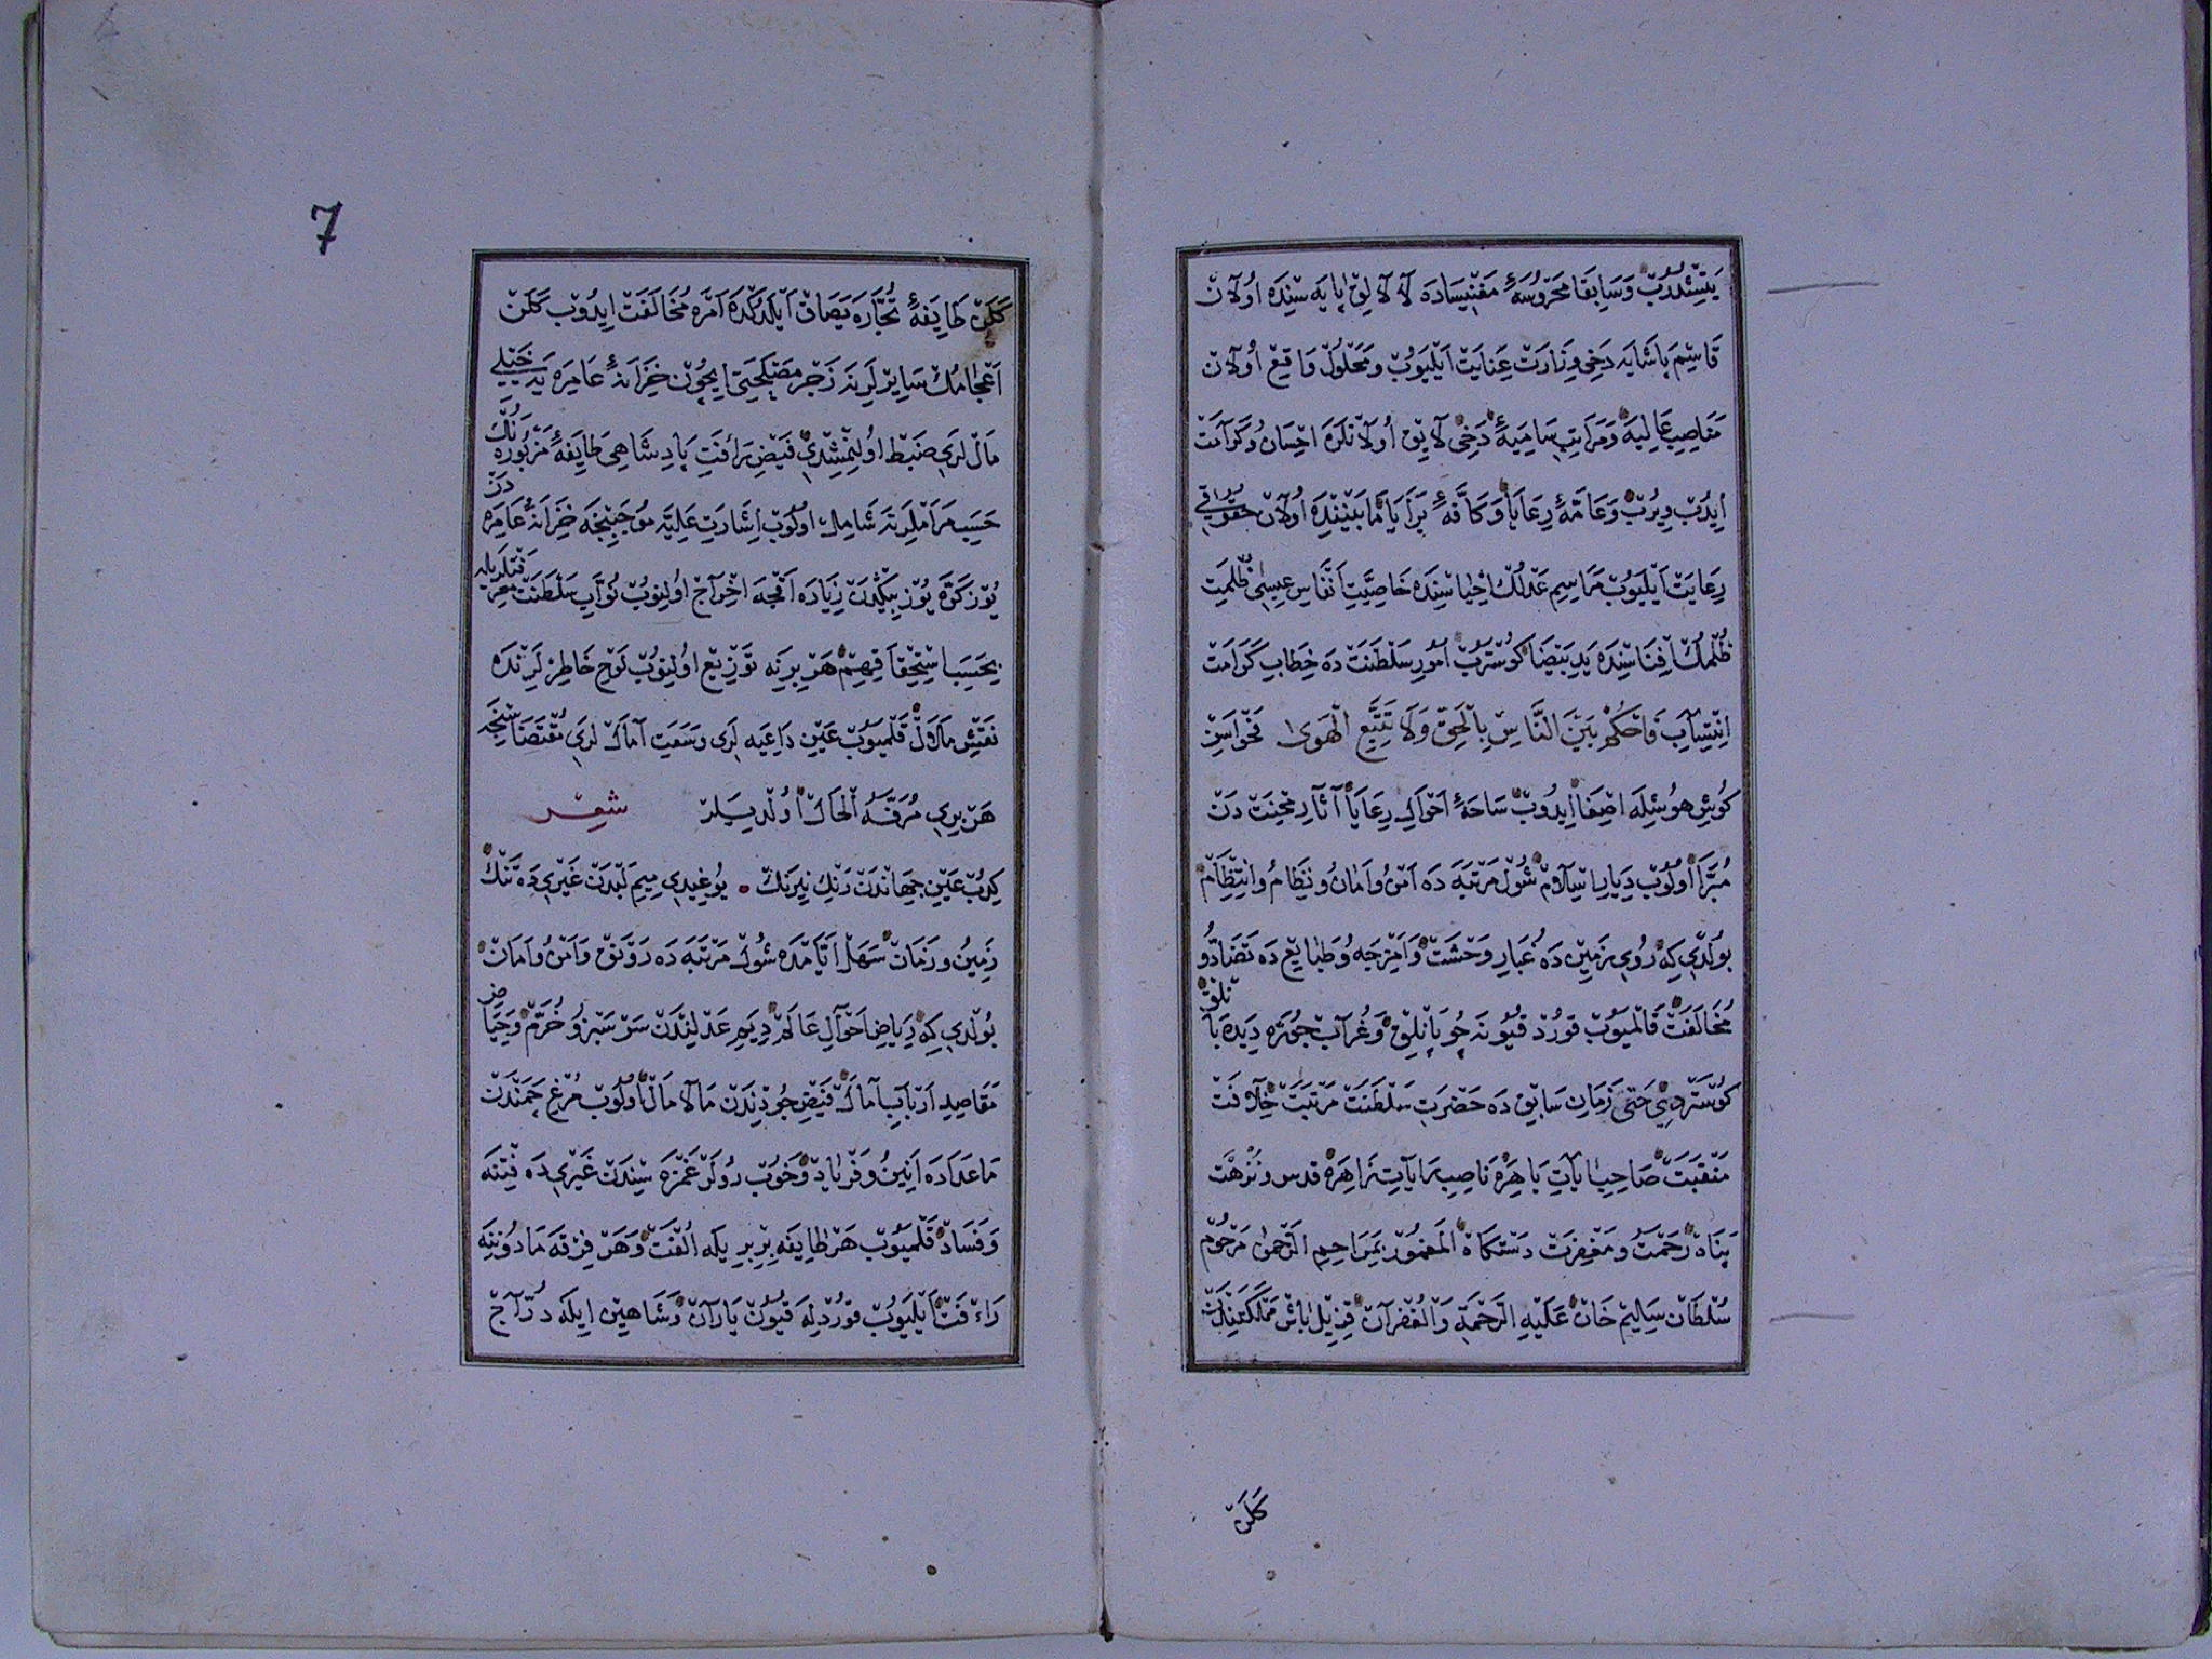 يتشدروب وسابقا محروسهٔ مغنيساده لالالق پايه سنده اولان
قاسم پاشايه دخی وزارت عنايت ايليوب ومحلول واقع اولان
مناصب عاليه ومراتب ساميهٔ دخی لايق اولانلره احسان وكرامت
ايدب ويرب وعامهٔ رعايا وكافهٔ برايا مابيننده اولان حقوقی
رعايت ايليوب مراسم عدلك احياسنده خاصيت انفاس عيسی ظلمت
ظلمك افناسنده يد بيضا كوسترب امور سلطنت ده خطاب كرامت
انتساب فاحكم بين الناس بالحق ولا تتبع الهوى نحواسن
كوش هوشله اصغا ايدوب ساحهٔ احوال رعايا آثار محنت دن
مبرا اولوب ديار اسلام شول مرتبه ده امن وامان ونظام وانتظام
بولدی كه روی زمين ده غبار وحشت وامزجه وطبايع ده تضاد و
مخالفت قالميوب قورد قيونه چوپانلق وغراب جوزه ديده بانلق
كوستردی حتی زمان سابق ده حضرت سلطنت مرتبت خلافت
منقبت صاحب ايات باهره ناصب رايات زاهره قدس ونزهت
پناه رحمت ومغفرت دستكاه المغمور بمراحم الرحمن مرحوم
سلطان سليم خان عليه الرحمة والغفران قزيل باش مملكتندن
كلن
7
كلن طايفهٔ تجاره يصاق ايلدكده امره مخالفت ايدوب كلن
اعجامك سايرلرينه زجر مصلحتی ايچون خزانهٔ عامره يه خيلی
مال لری ضبط اولنمشدی فيض رأفت پادشاهی طايفهٔ مزبوره نك
حسب مراملرينه شامل اولوب اشارت عليه موجبنجه خزانهٔ عامره دن
يوز كره يوز بيكدن زياده اقچه اخراج اولنوب نواب سلطنت معرفتلريله
بحسب استحقاقهم هر برينه توزيع اولنوب لوح خاطرلرنده
نقش ملال قلميوب عين داعيه لری وسعت آمال لری مقتضاسنجه
هر بری مرفه الحال اولديلر شعر
كيدب عين جهاندن رنك نيرنك . يوغيدی ميم لبدن غيری ده تنك
زمين وزمان سهل ايامده شول مرتبه ده رونق وامن وامان
بولدی كه رياض احوال عالم ديم عدلندن سرسبز وخرم وحياض
مقاصد ارباب آمال فيض جودندن مالامال اولوب مرغ چمندن
ماعداده انين وفرياد وخوب رولر غمزه سندن غيری ده فتنه
وفساد قلميوب هر طايفه بربريله الفت وهر فرقه مادوننه
رأفت ايليوب قوردله قيون ياران وشاهين ايله دراج